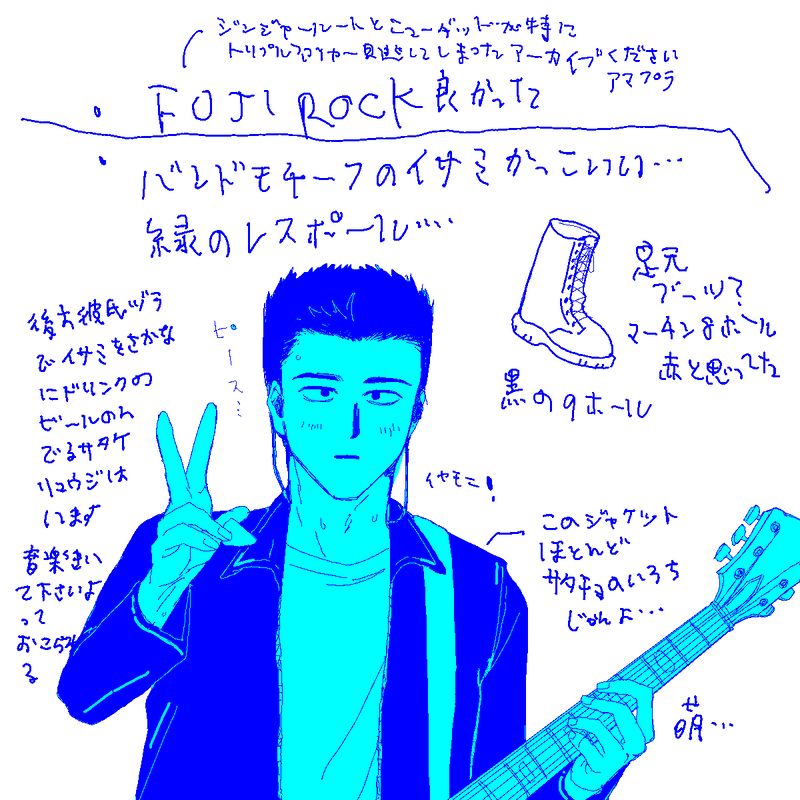 ジンジャールートとニューダッドが特に
トリプルファイヤー見逃してしまったアーカイブください
アマプラ
FUJI ROCK 良かった
バンドモチーフのイサミかっこいい…
緑のレスポール…
足元
ブーツ?
マーチン8ホール
赤と思ってた
黒の9ホール
後方彼氏ヅラ
でイサミをさかな
にドリンクの
ビールのん
でるサタケ
リュウジは
います
ピース…
イヤモニ!
音楽
て下さいよ
って
おこられ
る
このジャケット
ほとんど
サタケ
じゃんよ…
萌…